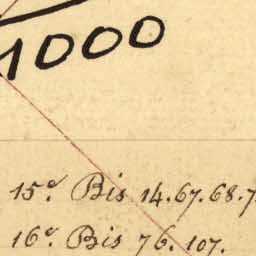 1000
15º. Bis 14.67.68.7
16º. Bis 76. 107.